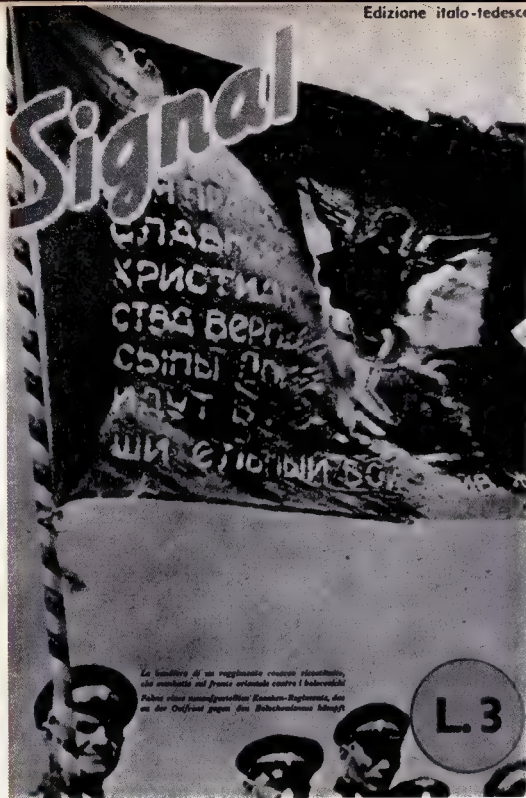 Edizione italo-tedesca
Signal
СЛАВН
ХРИСТИАН
СТВА ВЕРН
СЫНЫ
ИДУТ В
ШИТЕЛЬНЫЙ БОЙ
La bandiera di un reggimento cosacco ricostituito,
che combatte sul fronte orientale contro i bolscevichi
Fahne eines neuaufgestellten Kosaken-Regiments, das
an der Ostfront gegen den Bolschewismus kämpft
L. 3